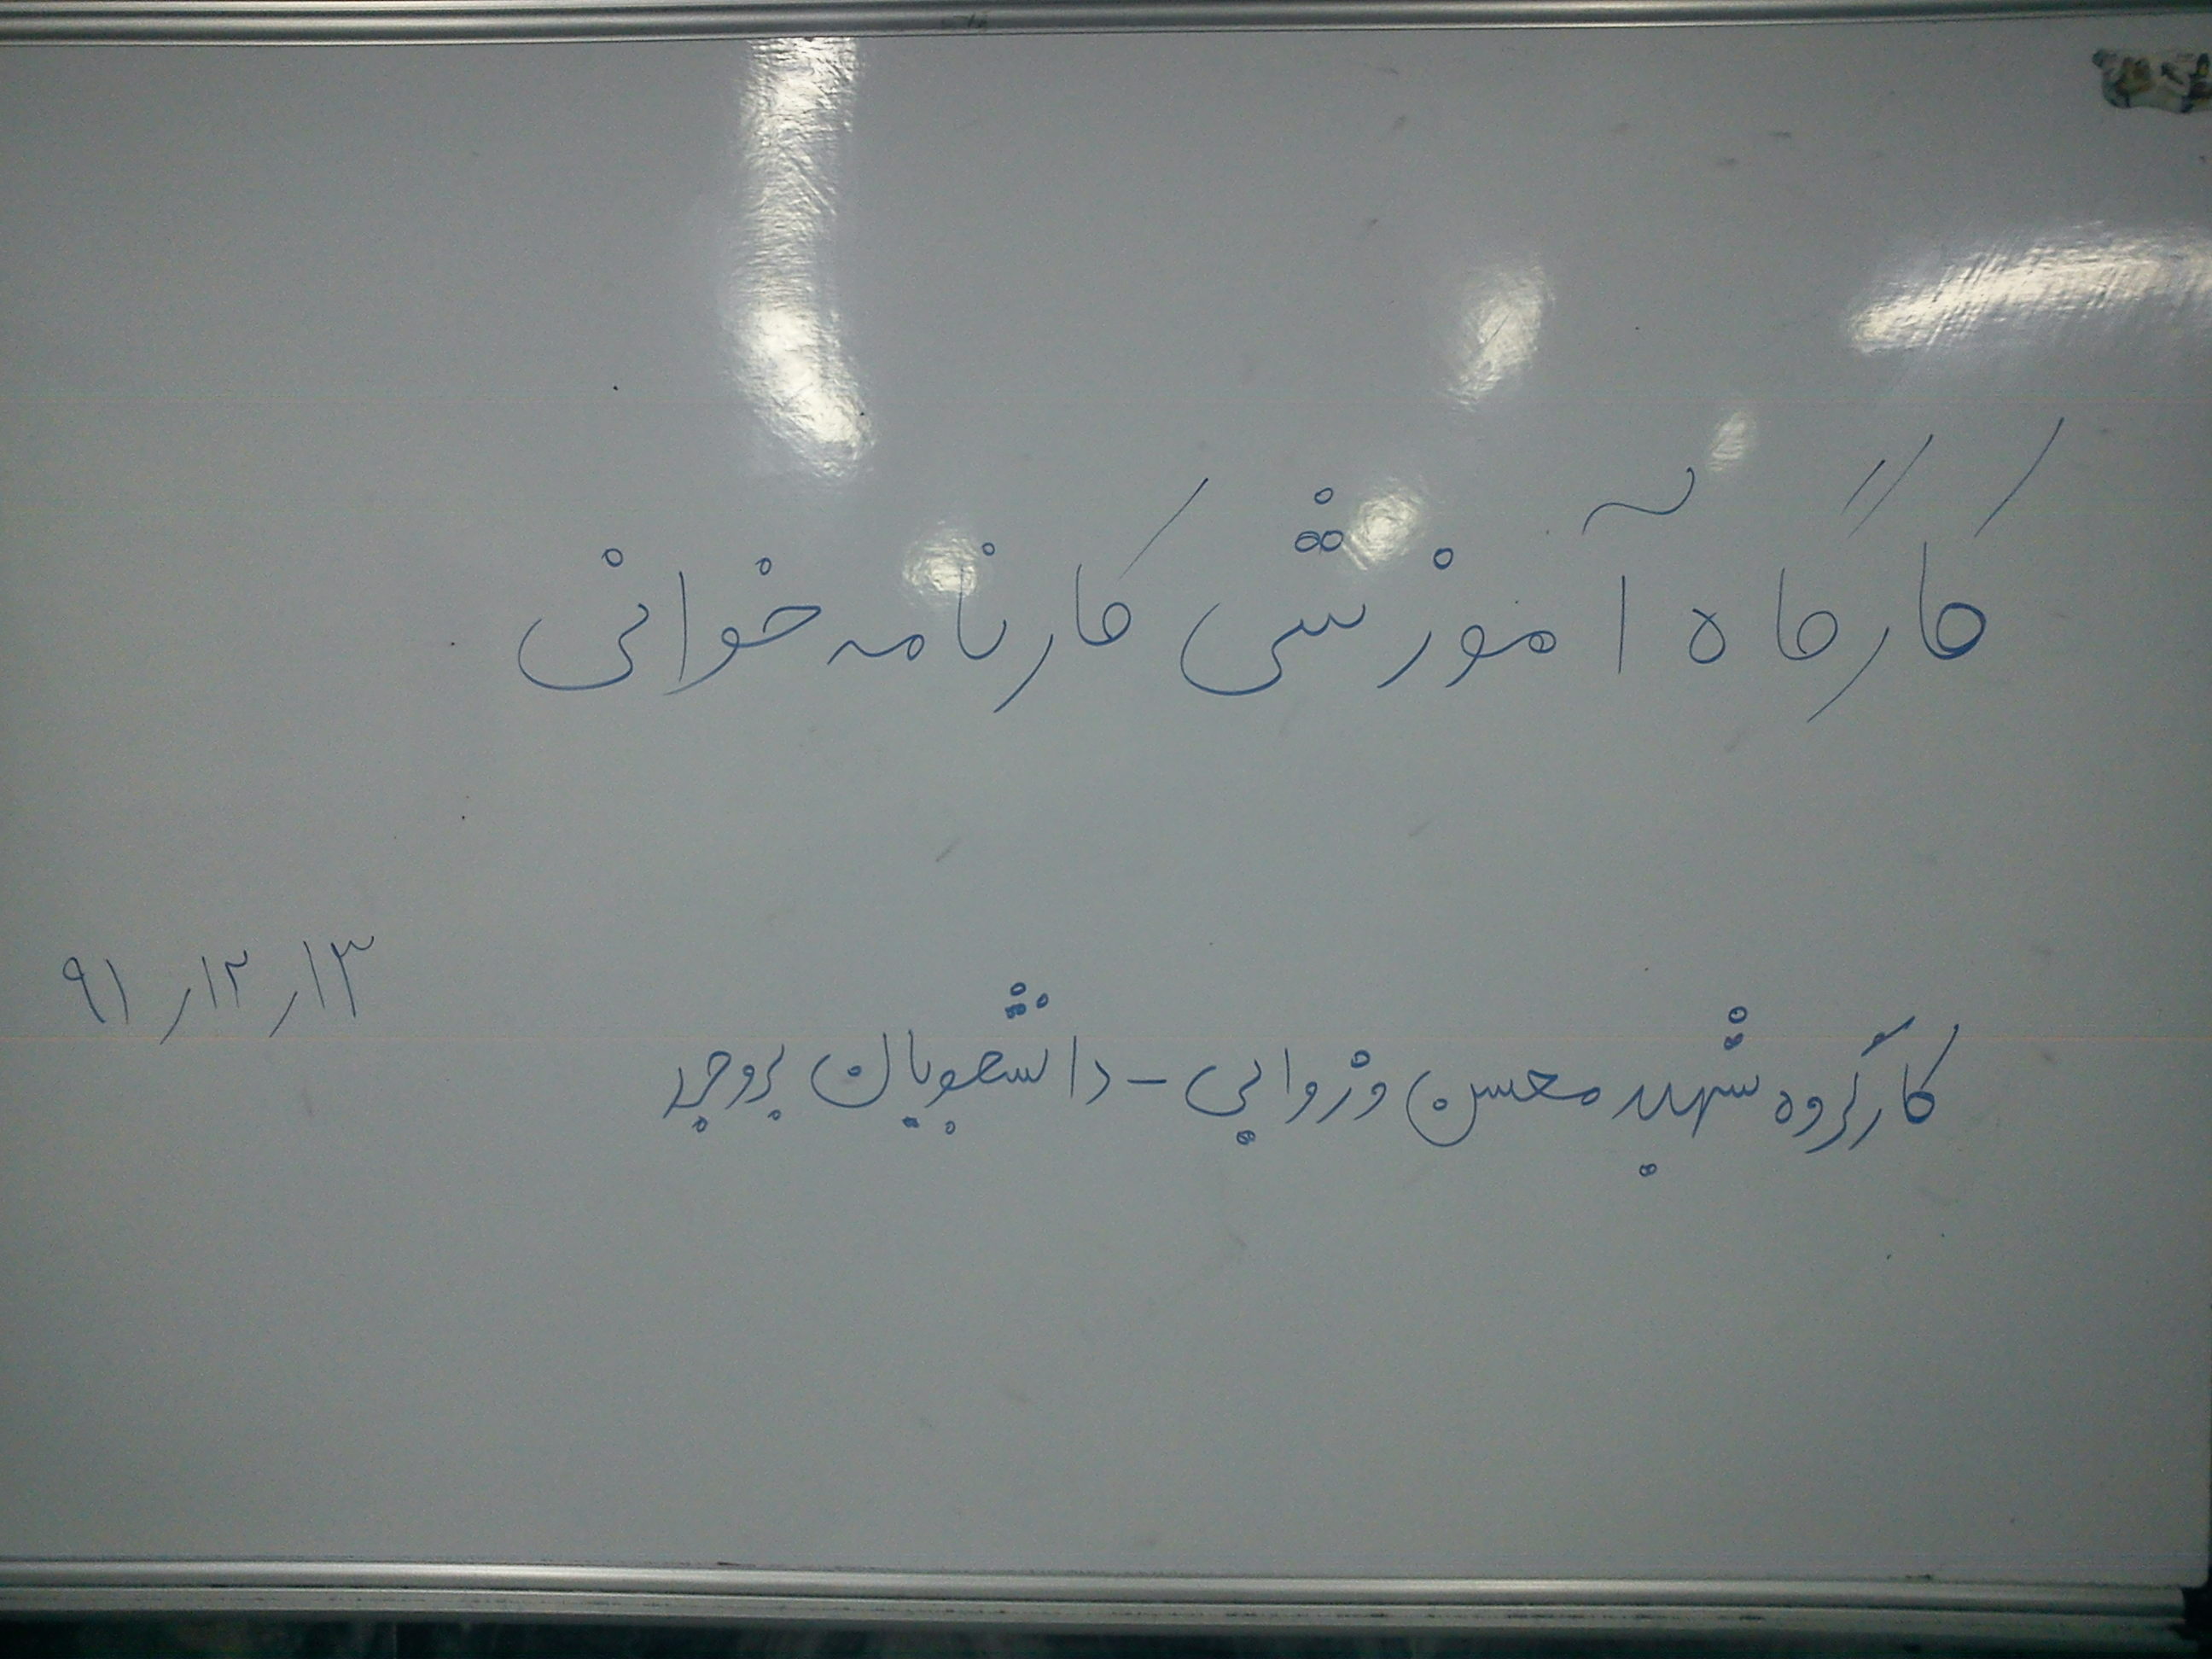 کارگاه آموزشی کارنامه خوانی
۹۱٫۱۲٫۱۳
کارگروه شهید محسن وزوایی - دانشجویان بروجرد